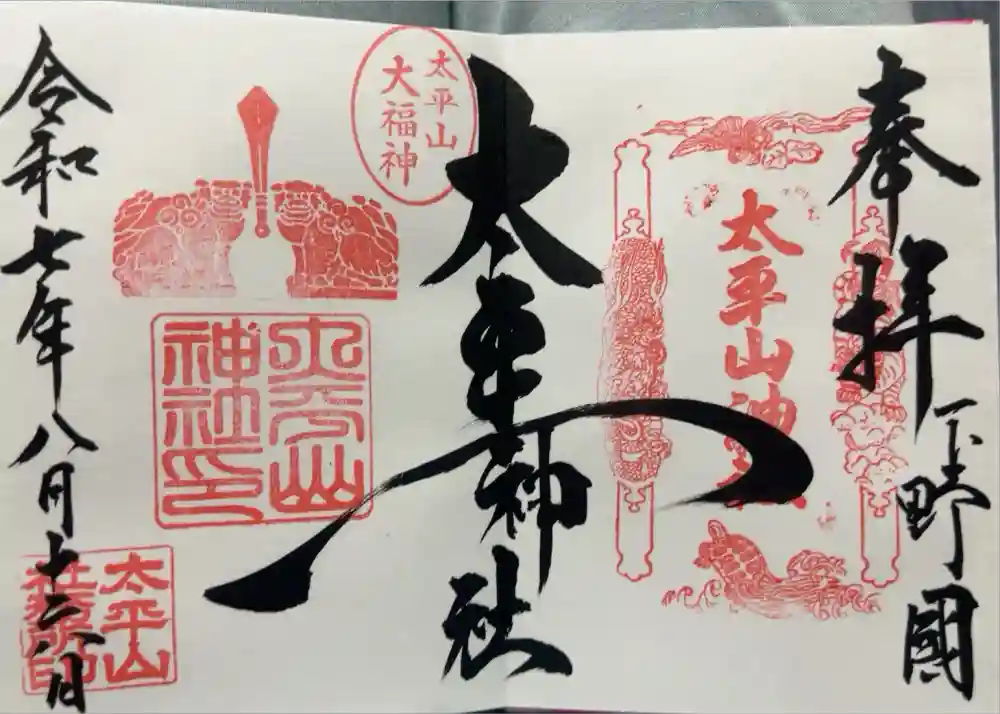 奉拝
下野國
太平山神社
太平山神社
太平山
大福神
太平山
神社印
令和七年八月十六日
太平山